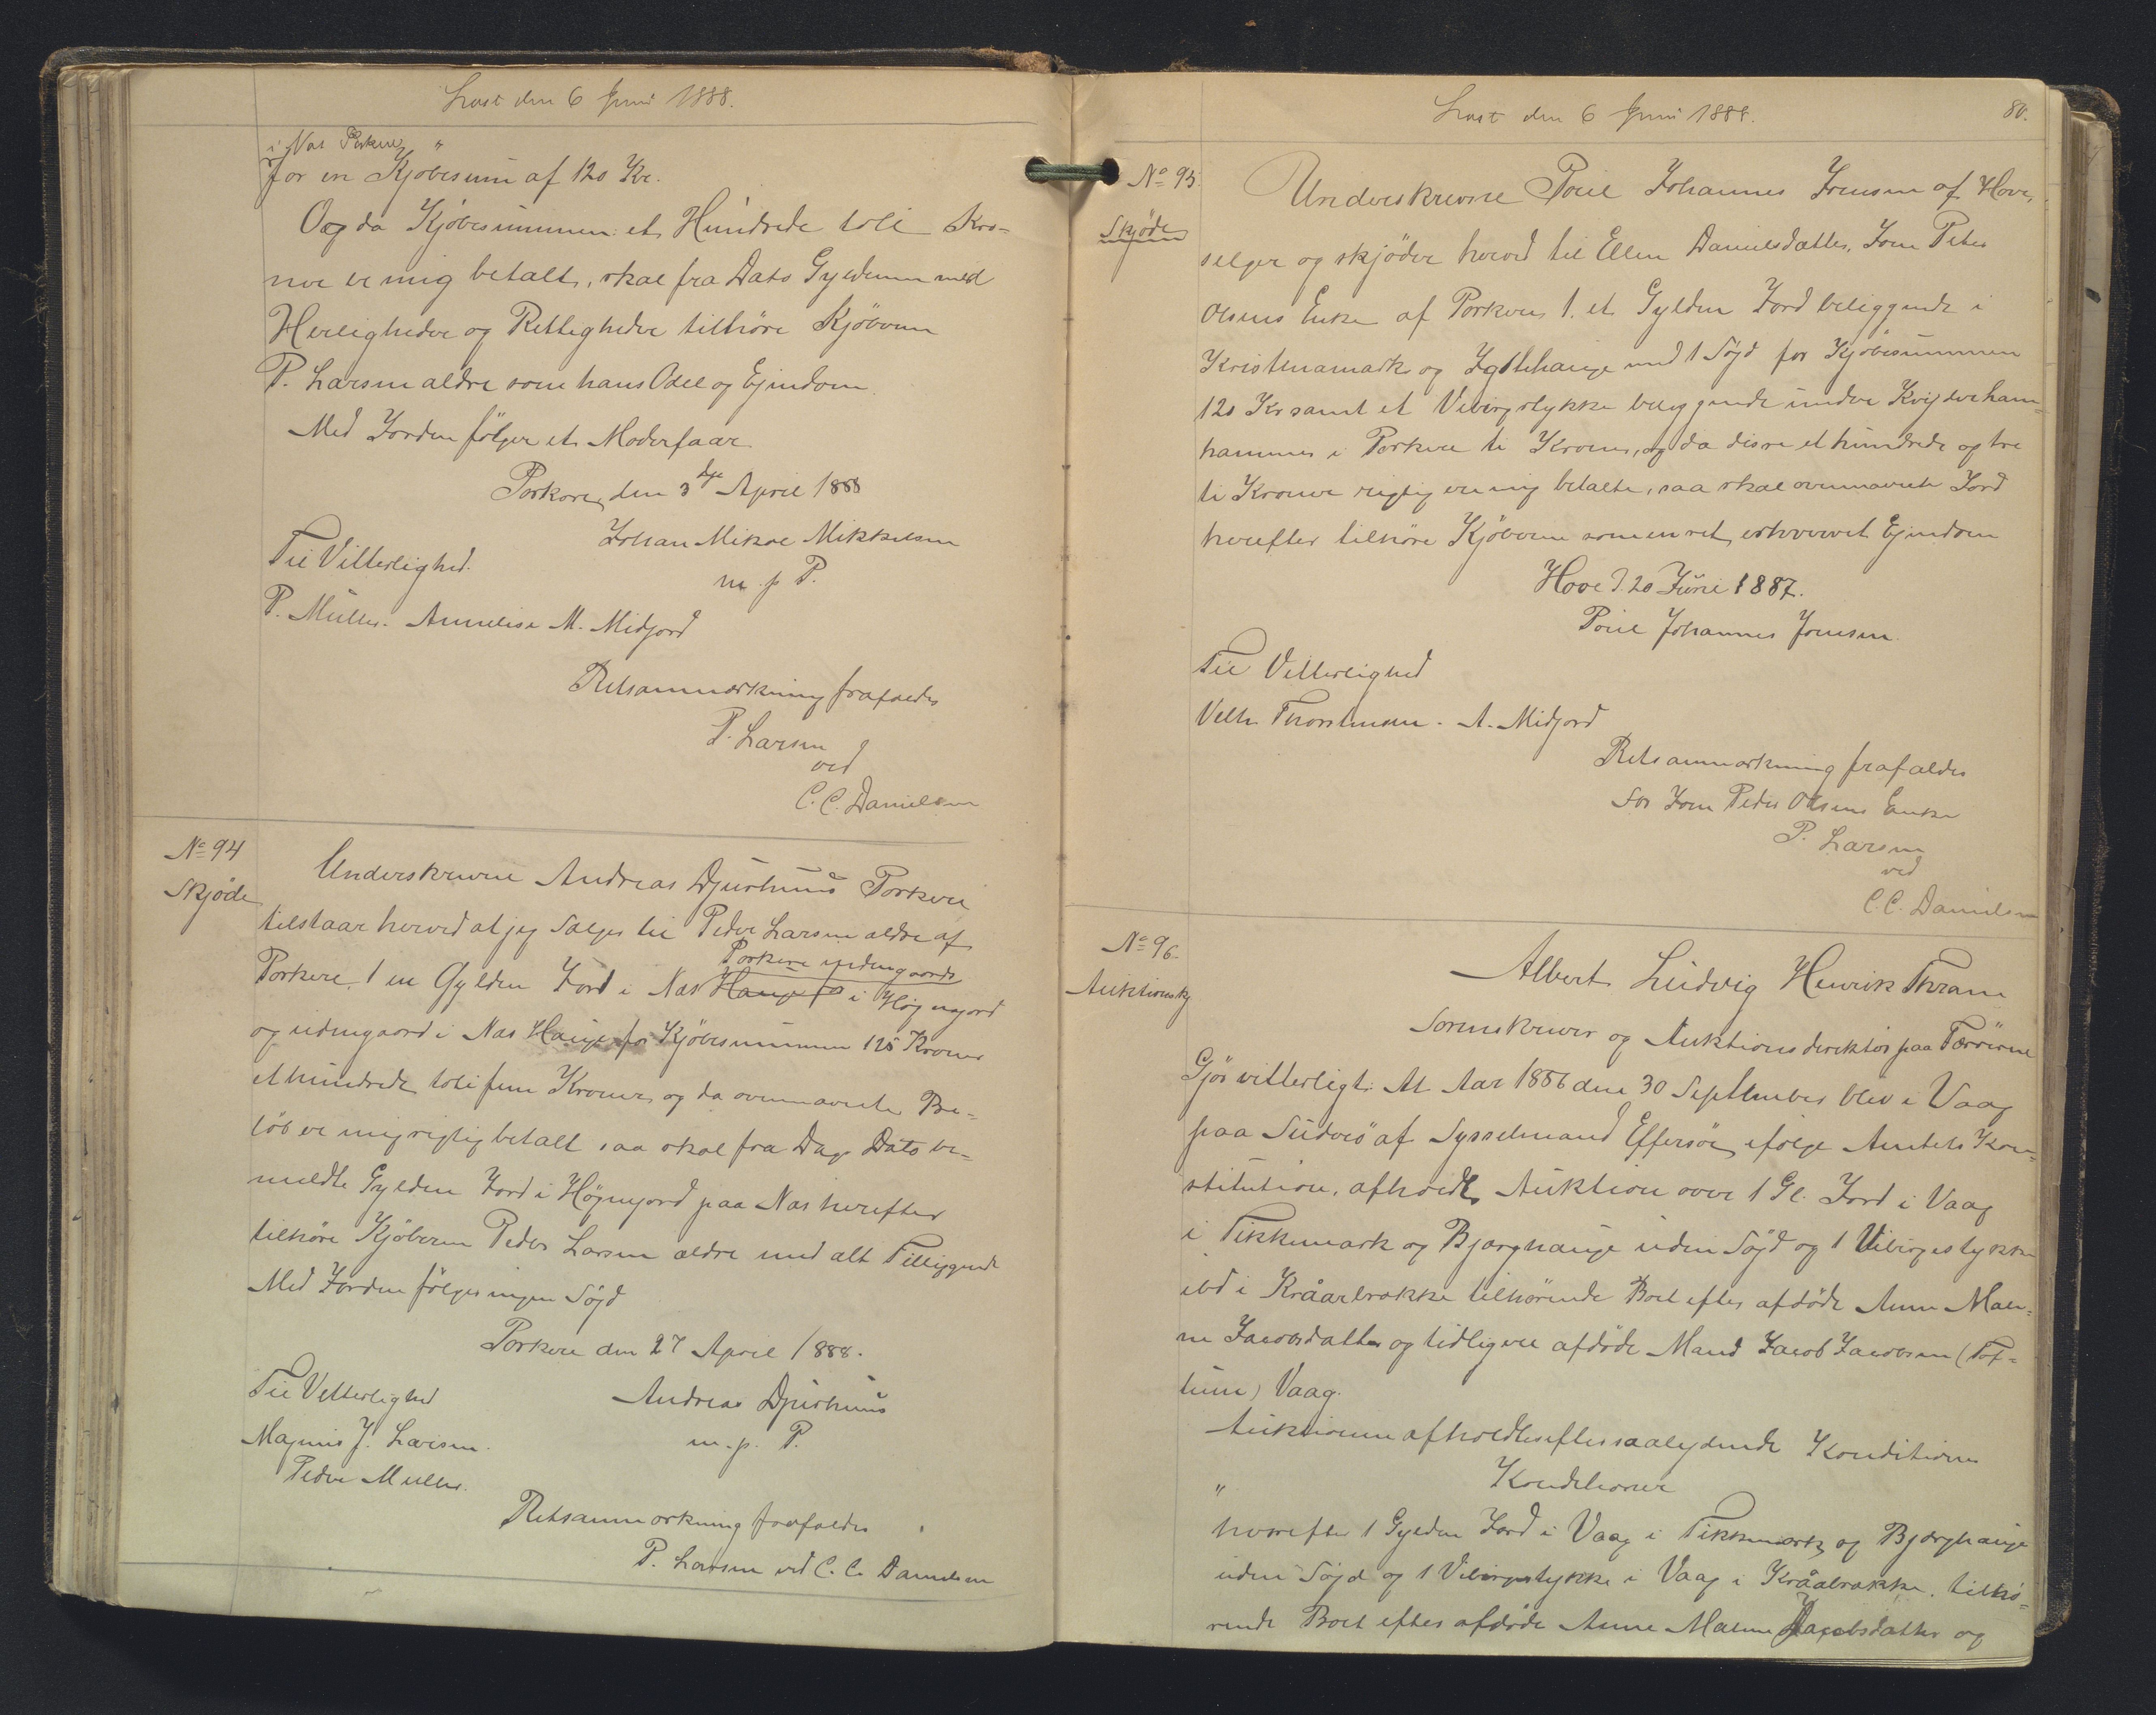 Læst den 6 Juni 1888.
i Næs Porkere
for en Kjøbesum af 120 Kr.
Og da Kjøbesummen et Hundrede toti Kro=
ner er mig betalt, skal fra Dato Gyldenen med
Herligheder og Rettigheder tilhøre Kjøberen
P. Larsen ældre som hans Odel og Ejendom.
Med Jorden følger et Moderfaar
Porkere, den 3die April 1888
Johan Mikal Mikkelsen
m. p. P.
Til Vitterlighed.
P. Müller. Annelise M. Midjord
Retsanmærkning frafaldes
P. Larsen
ved
C. C. Danielsen
No 94
Skjøde
Underskrevne Andreas Djurhuus Porkere
tilstaar herved at jeg Sælger til Peder Larsen ældre af
Porkere indengaards
Porkere 1 en Gylden Jord i Næs Hauge i Høgnejord
og udengaard i Næs Hauge for Kjøbesummen 125 Kroner
et hundrede toti fem Kroner, og da ovennævnte Be=
løb er mig rigtig betalt saa skal fra Dags Dato be=
meldte Gylden Jord i Høgnejord paa Næs herefter
tilhøre Kjøberen Peder Larsen ældre med alt Tilliggende
Med Jorden følger ingen Søjd
Porkere den 27 April 1888.
Til Vitterlighed
Andreas Djurhuus
m. p. P.
Magnus J. Larsen.
Peder Müller.
Retsanmærkning frafaldes
P. Larsen ved C. C. Danielsen
Læst den 6 Juni 1888.
80.
No 95.
Skjøde
Underskrevne Poul Johannes Joensen af Hove,
sælger og skjøder herved til Ellen Danielsdatter, Joen Peter
Olsens Enke af Porkere 1. et Gylden Jord beliggende i
Kristinamark og Hauge med 1 Søjd for Kjøbesummen
120 Kr samt et Vebirgstykke beliggende under
hammer i Porkere ti Kroner, og da disse et hundrede og tre
ti Kroner rigtig ere mig betalte, saa skal ovennævnte Jord
herefter tilhøre Kjøberen som en ret erhvervet Ejendom
Hove d. 20 Juni 1887.
Poul Johannes Joensen.
Til Vitterlighed
Vilh. Thorsteinsen. A. Midjord
Retsanmærkning frafaldes
for Joen Peder Olsens Enke
P. Larsen
ved
C. C. Danielsen
No 96.
Auktionskj
Albert Ludvig Henrik Thrane
Sorenskriver og Auktionsdirektør paa Færøerne
Gjør vitterligt: At Aar 1886 den 30 September blev i Vaag
paa Suderø af Sysselmand Effersøe, ifølge Amtets Kon=
stitution, afholdt Auktion over 1 Gl. Jord i Vaag
i Tikkemark og Bjarghauge uden Søjd og 1 Vebirgstykke
ibd i Kråarbrakke tilhørende Boet efter afdøde Anne Male=
ne Jacobsdatter og tidligere afdøde Mand Jacob Jacobsen (Tof=
tum) Vaag.
Auktionen afholdtes efter saalydende Konditioner
" Konditioner
hvorefter 1 Gylden Jord i Vaag i Tikkemark og Bjarghauge
uden Søjd og 1 Vebirgstykke i Vaag i Kråabrakke, tilhø=
rende Boet efter afdøde Anne Malene Jacobsdatter og